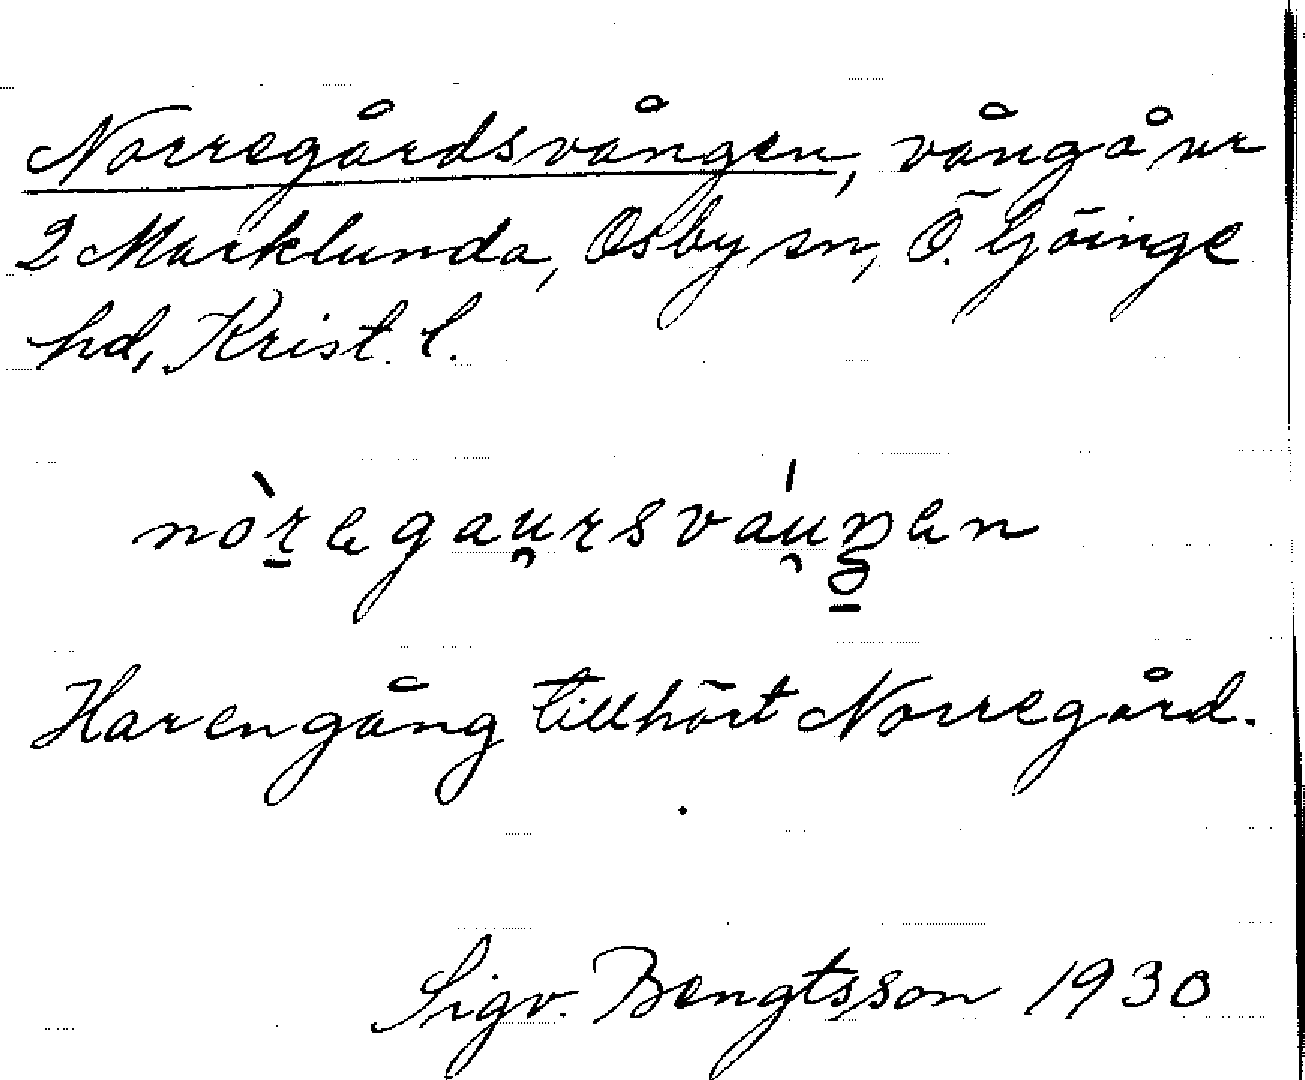 Norregårdsvången, vång å nr
2 Marklunda, Osby sn, Ö. Göinge
hd, Krist. l.
nòregau̯rsváu̯ŋen
Har en gång tillhört Norregård.
Sigv. Bengtsson 1930